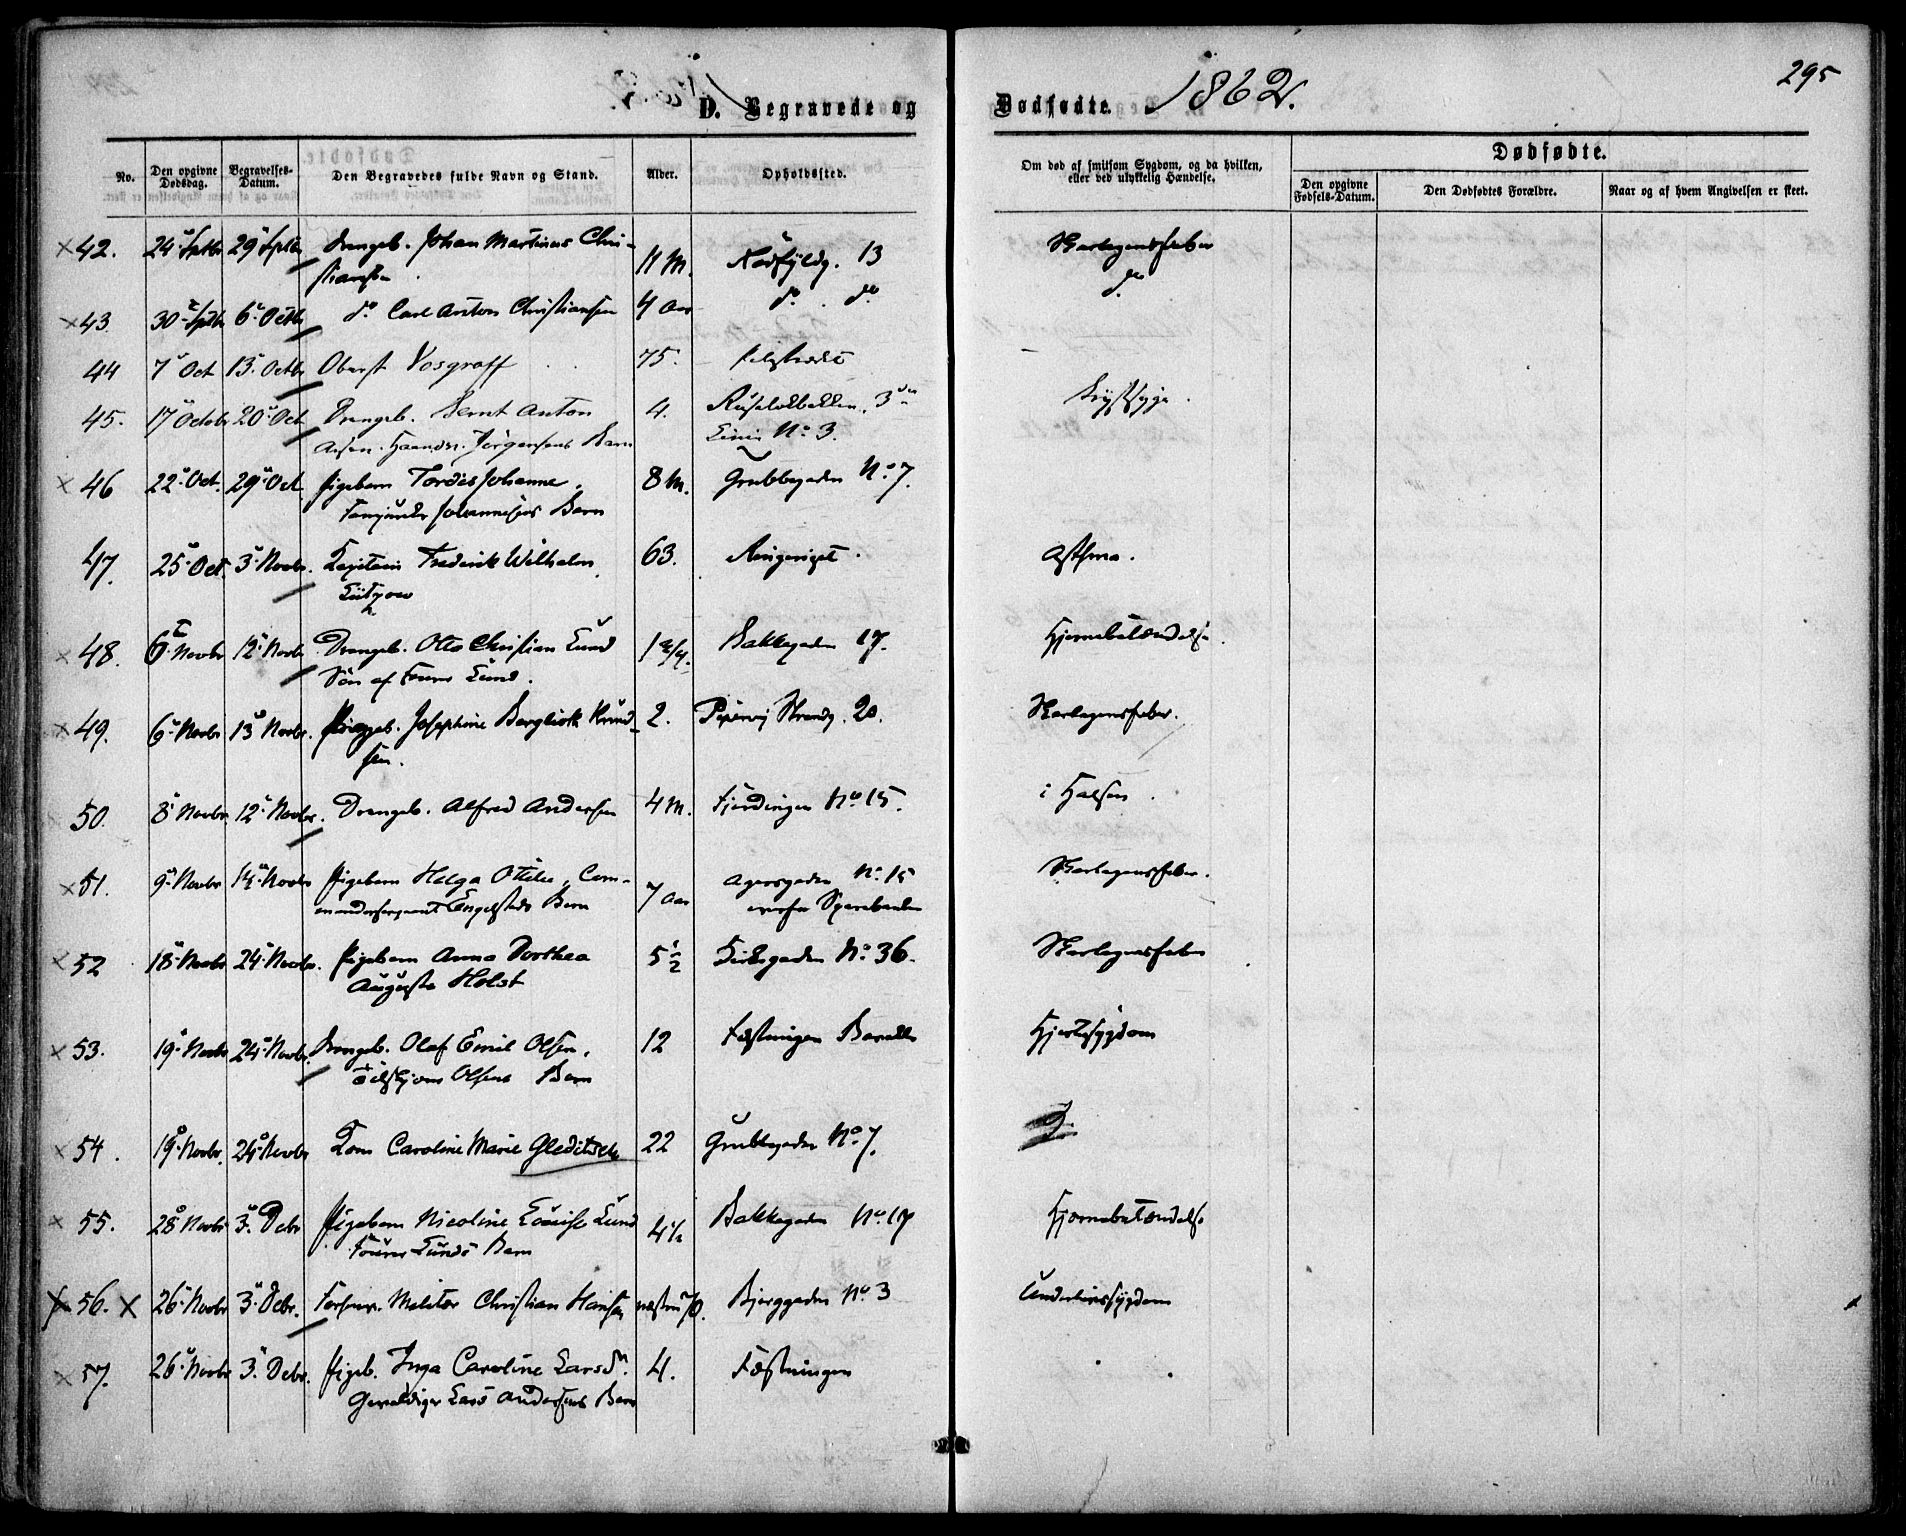 295
D. Begravede og Dødfødte. 1862.
No. Den opgivne Dødsdag. Begravelses-Datum. Den Begravedes fulde Navn og Stand. Alder. Opholdssted. Om død af smitsom Sygdom, og da hvilken, eller ved ulykkelig Hændelse. Dødfødte.
Den opgivne Fødsels-Datum. Den Dødfødtes Forældre. Naar og af hvem Angivelsen er skeet.
42. 24 Septbr 29 Septbr Drengeb. Johan Martinus Chri- 11 M. 13 Skarlagensfeber
stiansen
43. 30 Septbr 6 Octbr do Carl Anton Christiansen 4 Aar do. do do
44 7 Oct 13. Octbr Oberst Vosgraff 75.
45. 17 Octobr 20 Oct Drengeb. Bernt Anton 4. Ruseløkbakken, 3die
Jørgensens Barn Linie No 3.
46 22 Oct. 29 Oct Pigebarn Tordis Johanne, 8 M. Grubbegaden No 7.
Barn
47. 25 Oct. 3 Novbr. Capitain Frederik Wilhelm 63. Ringeriget. Asthma.
Lützow
48. 6 Novbr 12 Novbr Drengeb. Otto Christian Lund 1 3/4. Bakkegaden 17. Hjernebetændelse.
Søn af Lund.
49. 6 Novbr 13 Novbr. Pigeb. Josephine Bergliott Knud- 2. Pipervig Strandg. 20. Skarlagensfeber.
sen.
50. 8 Novbr 12 Novbr. Drengeb. Alfred Andersen 4 M. Fjerdingen No 15. i Halsen.
51. 9 Novbr 14 Novbr Pigebarn Helga Otilie, Com- 7 Aar Agersgaden No 15 Skarlagensfeber.
mandersergeant Engelstads Barn Sparebanken
52 18 Novbr 24 Novbr. Pigebarn Anna Dorthea 5 1/2 Kirkegaden No 36. Skarlagensfeber
Augusta Holst
53. 19 Novbr 24 Novbr. Drengeb. Olaf Emil Olsen, 12 Fæstningen Hjertesygdom
Olsens Barn
54. 19 Novbr. 24 Novbr Kone Caroline Marie Gleditsch 22 Grubbegaden No 7.
55. 28 Novbr 3. Debr Pigebarn Nicoline Louise Lund 4 1/2 Bakkegaden No 17 Hjernebetændelse
Lunds Barn
56. 26 Novbr 3. Debr. Militær Christian Hansen næsten 70. Bjerggaden No 3 Underlivssygdom
57. 26 Novbr 3. Debr. Pigeb. Inga Caroline Larsdr. 4. Fæstningen
Gevaldiger Lars Andersens Barn